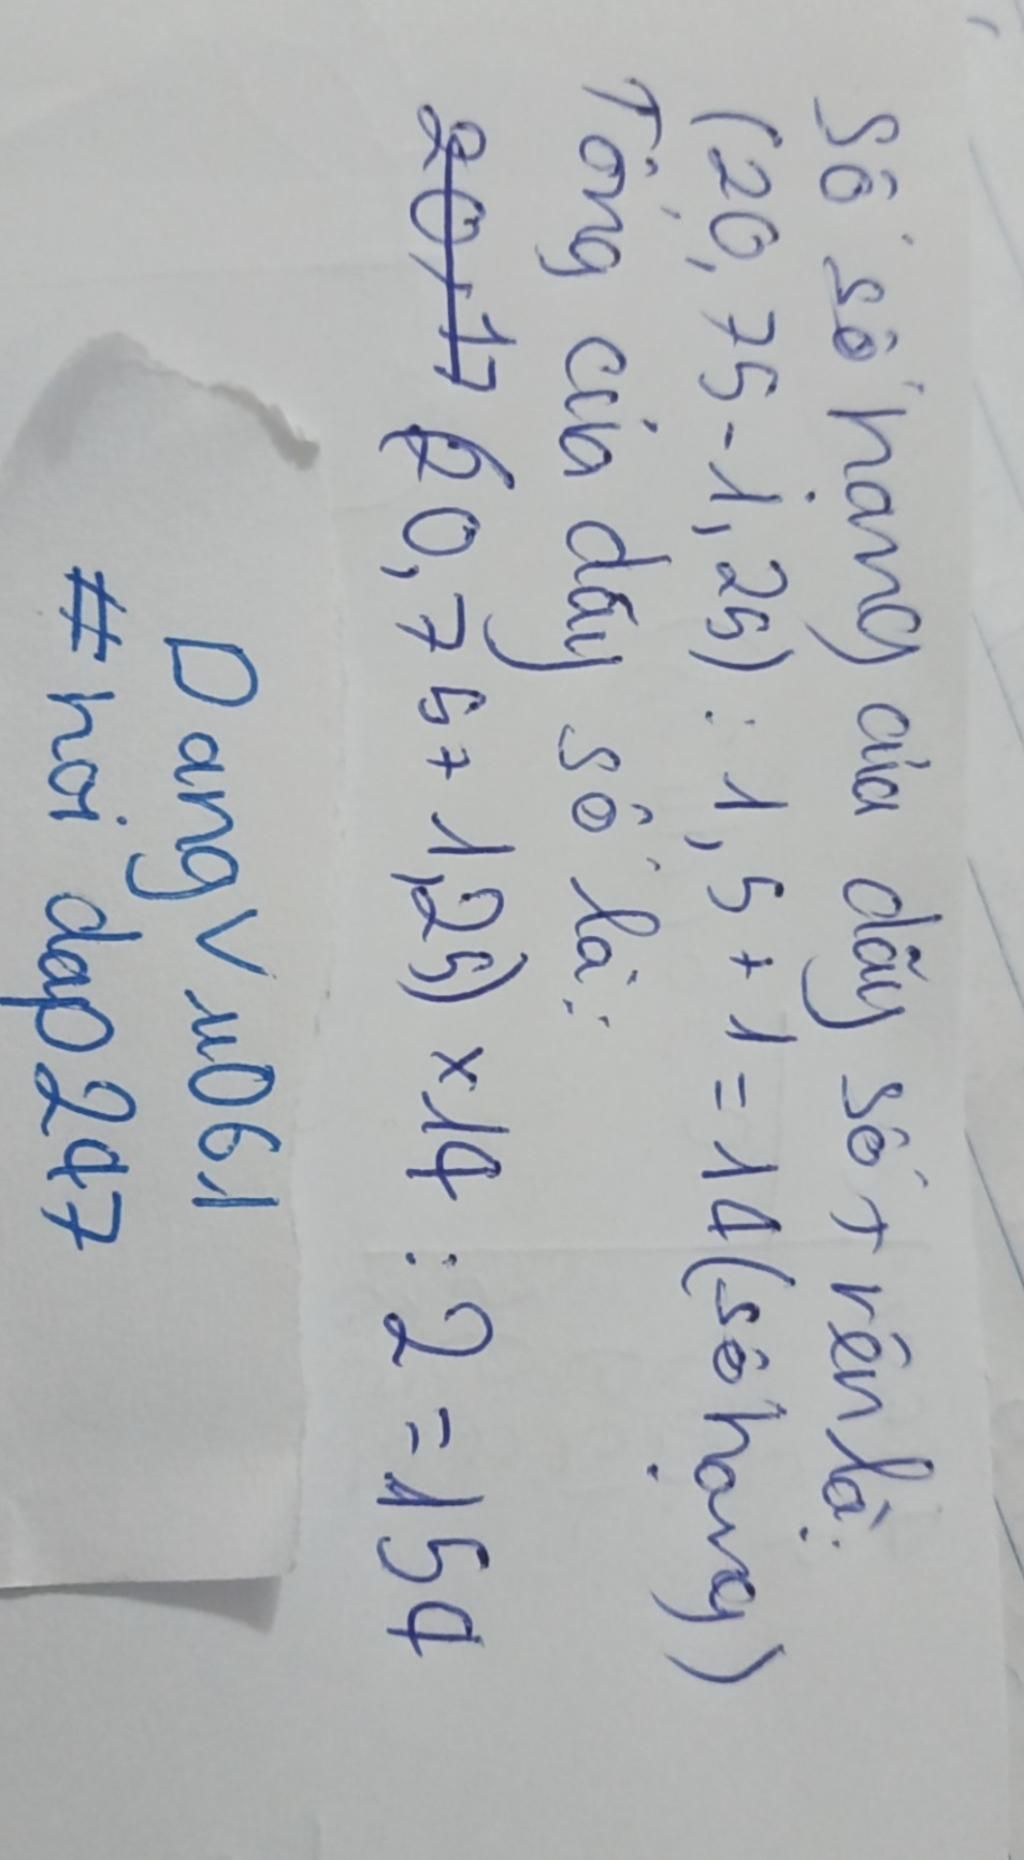 Số số hạng của dãy số trên là:
(20,75-1,25) : 1,5+1=14(số hạng)
Tổng của dãy số là:
20,17 (20,75+1,25)×14 : 2=154
DangVu061
#hoi dap247